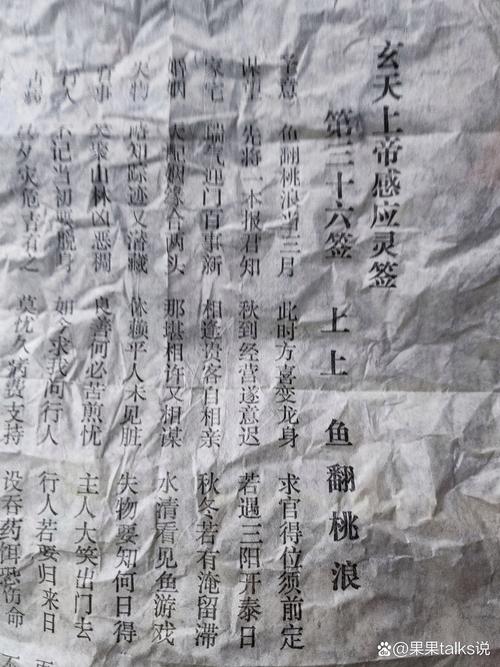 玄天上帝感应灵签
第三十六签 上上 鱼翻桃浪
鱼翻桃浪当三月 此时方喜变龙身 求官得位须前定
谋望 先将一本报君知 秋到经营遂意迟 若遇三阳开泰日
家宅 瑞气迎门百事新 相逢贵客自相亲 秋冬若有淹留滞
婚姻 天配姻缘合两头 那堪相许又相谋 水清看见鱼游戏
失物 暗知踪迹又潜藏 休赖平人未见脏 失物要知何日得
官事 山林凶恶稠 良善何必苦煎忧 主人大笑出门去
行人 不记当初要脱身 如今求我问行人 行人若要归来日
占病 夕灾危害有之 莫忧久病费支持 没吞药饵恐伤命
果果talks说